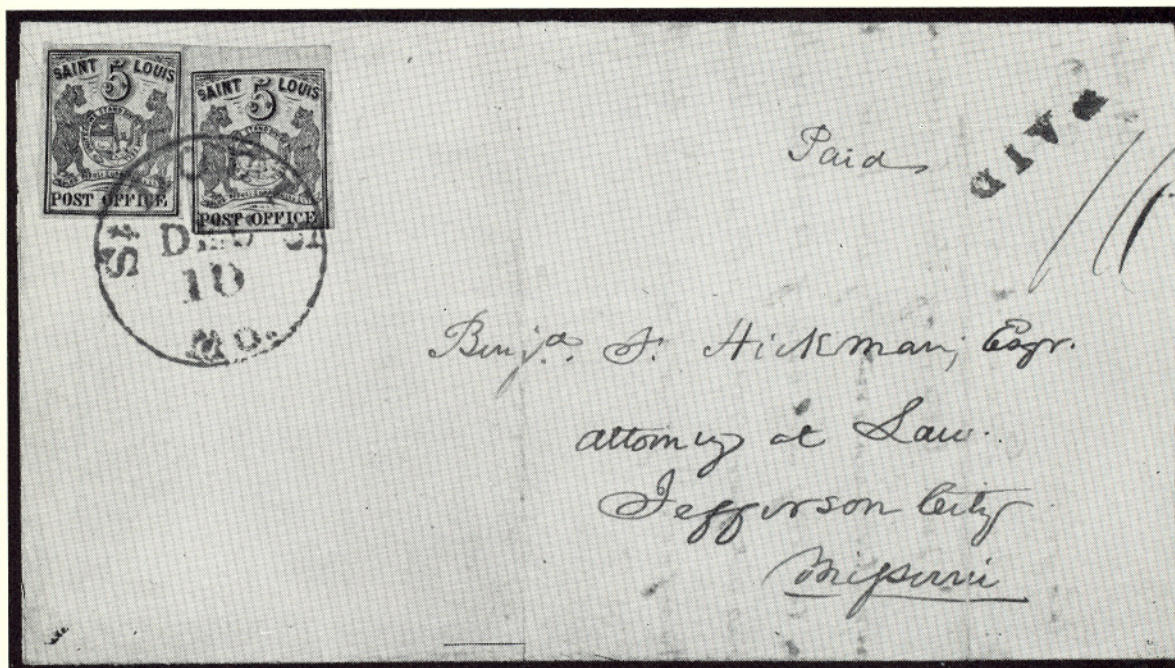 SAINT 5 LOUIS
POST OFFICE
SAINT 5 LOUIS
POST OFFICE
St
10
Mo.
Paid
PAID
Benjª. F. Hickman, Esqr.
Attorney at Law.
Jefferson City
Missouri